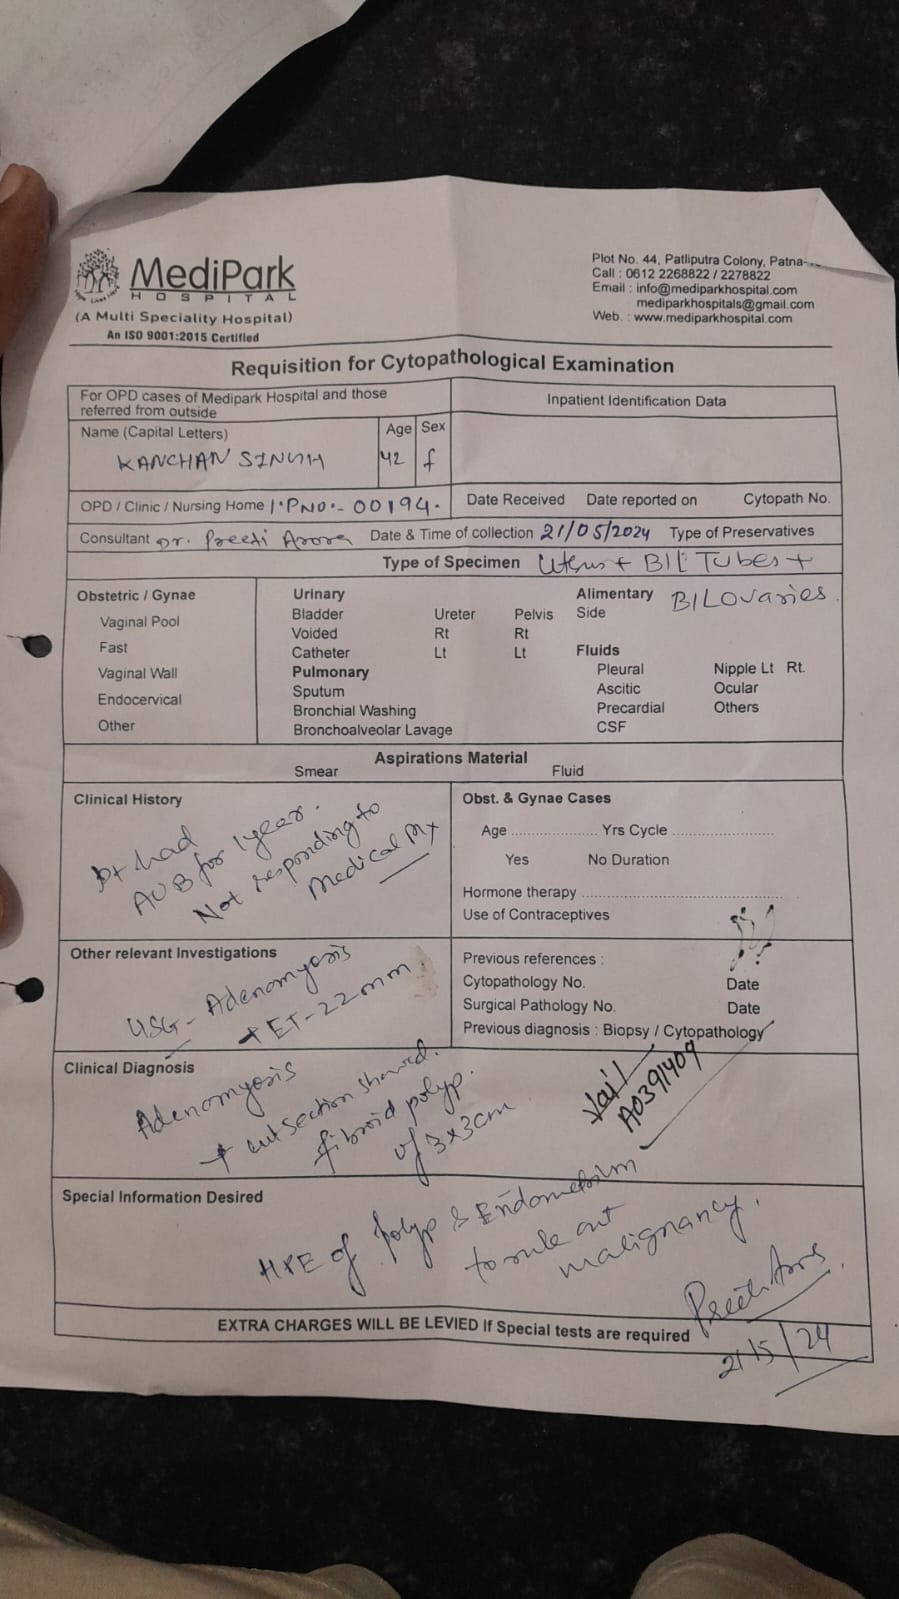 MediPark
HOSPITAL
(A Multi Speciality Hospital)
An ISO 9001:2015 Certified
Plot No. 44, Patliputra Colony, Patna-
Call : 0612 2268822 / 2278822
Email : info@mediparkhospital.com
mediparkhospitals@gmail.com
Web. : www.mediparkhospital.com
Requisition for Cytopathological Examination
For OPD cases of Medipark Hospital and those
referred from outside
Inpatient Identification Data
Name (Capital Letters) Age Sex
KANCHAN SINGH 42 f
OPD / Clinic / Nursing Home I.P NO.- 00194. Date Received Date reported on Cytopath No.
Consultant Dr. Preeti Arora Date & Time of collection 21/05/2024 Type of Preservatives
Type of Specimen Uterus + B/L Tubes +
B/L Ovaries
Obstetric / Gynae
Vaginal Pool
Fast
Vaginal Wall
Endocervical
Other
Urinary
Bladder Ureter Pelvis
Voided Rt Rt
Catheter Lt Lt
Pulmonary
Sputum
Bronchial Washing
Bronchoalveolar Lavage
Alimentary
Side
Fluids
Pleural Nipple Lt Rt.
Ascitic Ocular
Precardial Others
CSF
Aspirations Material
Smear Fluid
Clinical History
Pt had
AUB for 1 year.
Not responding to
Medical Mx
Obst. & Gynae Cases
Age .................... Yrs Cycle ........................
Yes No Duration
Hormone therapy ................................................
Use of Contraceptives
Other relevant Investigations
USG - Adenomyosis
+ ET - 22 mm.
Previous references :
Cytopathology No. Date
Surgical Pathology No. Date
Previous diagnosis : Biopsy / Cytopathology
Clinical Diagnosis
Adenomyosis
+ cut section showed
fibroid polyp
of 3x3cm
A0391409
Special Information Desired
HPE of Polyp & Endometrium
to rule out
malignancy.
Preeti Arora
21/5/24
EXTRA CHARGES WILL BE LEVIED If Special tests are required